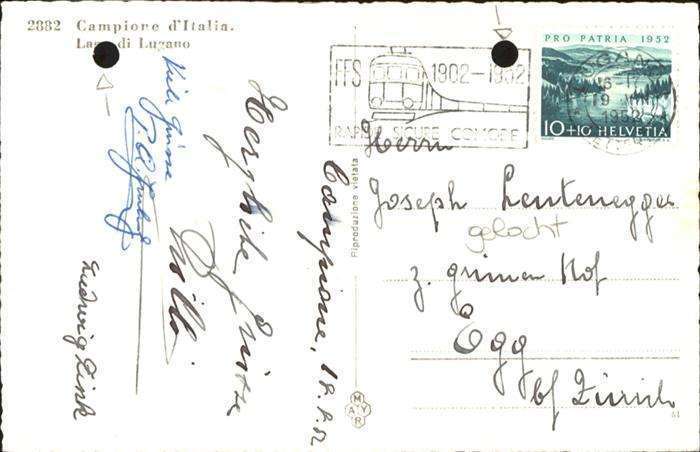 2882 Campione d'Italia.
Lago di Lugano
Campione, 18.8.52
Herzliche Grüsse
Willi
Viele Grüsse
Ludwig Link
Riproduzione vietata
MAYR
FFS 1902-1952
RAPIDE SICURE COMODE
PRO PATRIA 1952
10+10 HELVETIA
1952
Herrn
Joseph Leutenegger
gelocht
z. grünen Hof
Egg
bf Zürich